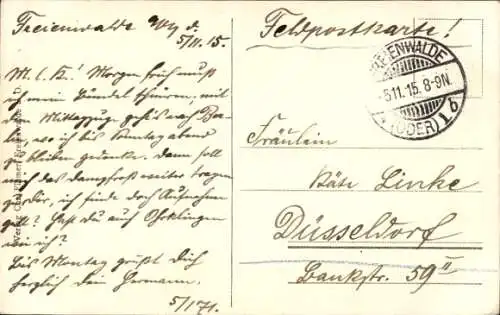 Freienwalde a/O d.
5/11. 15.
M. l. K! Morgen früh muß
ich mein Bündel schnüren, mit
dem Mittagszug geht's nach Ber-
lin, wo ich bis Sonntag abend
zu bleiben gedenke. Dann soll
mich das Dampfroß weiter tragen
zu Dir, ich finde doch Aufnahme
? Hast du auf
ich?
Bis Montag grüßt Dich
herzlich Dein Hermann.
5/171.
Feldpostkarte!
FREIENWALDE
5.11.15. 8-9N.
(ODER) 1 b
Fräulein
Käte Linke
Düsseldorf
Bankstr. 59 II